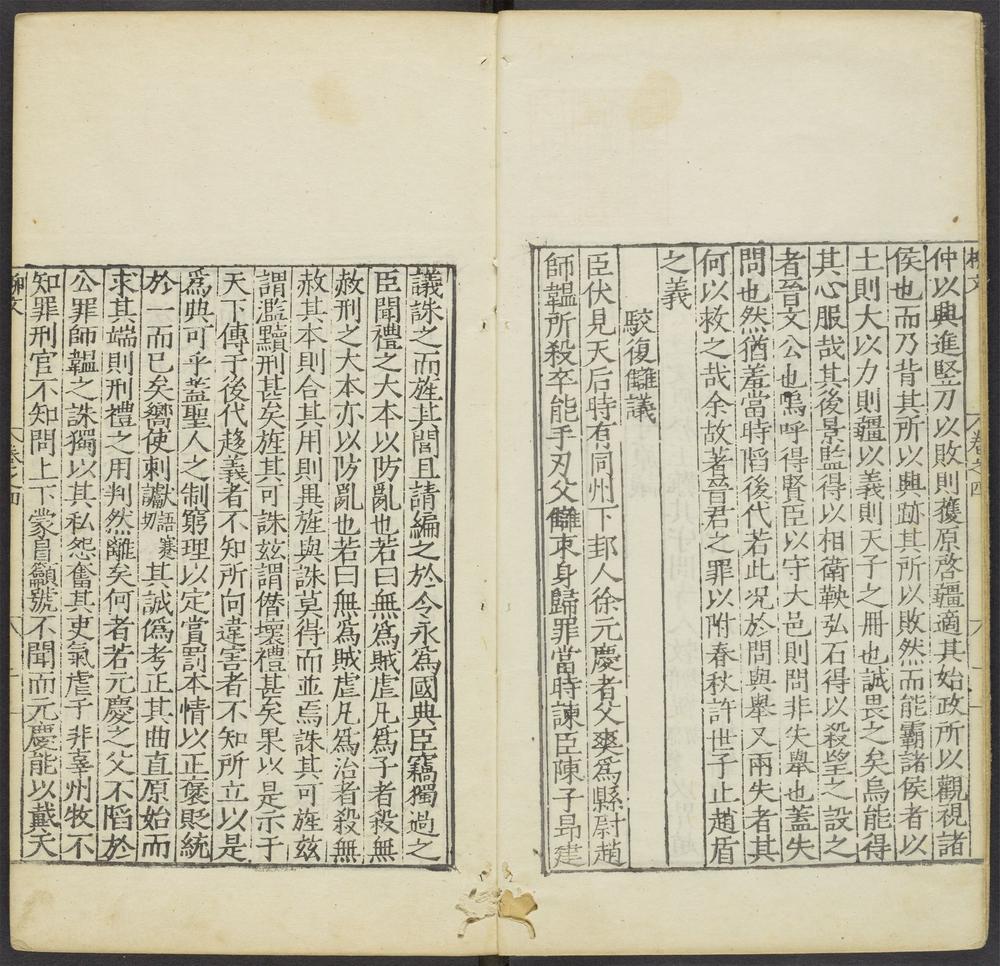 柳文
卷之四
仲以興進豎刀以敗則獲原啓疆適其始政所以觀視諸
侯也而乃背其所以興跡其所以敗然而能霸諸侯者以
土則大以力則疆以義則天子之冊也誠畏之矣烏能得
其心服哉其後景監得以相衛鞅弘石得以殺望之設之
者晉文公也嗚呼得賢臣以守大邑則問非失舉也蓋失
問也然猶羞當時陷後代若此況於問與舉又兩失者其
何以救之哉余故著晉君之罪以附春秋許世子止趙盾
之義
駮復讎議
臣伏見天后時有同州下邽人徐元慶者父爽爲縣尉趙
師韞所殺卒能手刃父讎束身歸罪當時諫臣陳子昂建
議誅之而旌其閭且請編之於令永爲國典臣竊獨過之
臣聞禮之大本以防亂也若曰無爲賊虐凡爲子者殺無
赦刑之大本亦以防亂也若曰無爲賊虐凡爲治者殺無
赦其本則合其用則異旌與誅莫得而並焉誅其可旌茲
謂濫黷刑甚矣旌其可誅茲謂僭壞禮甚矣果以是示于
天下傳于後代趍義者不知所向違害者不知所立以是
爲典可乎蓋聖人之制窮理以定賞罰本情以正褒貶統
於一而已矣嚮使刺讞語蹇切其誠僞考正其曲直原始而
求其端則刑禮之用判然離矣何者若元慶之父不陷於
公罪師韞之誅獨以其私怨奮其吏氣虐于非辜州牧不
知罪刑官不知問上下蒙冒籲號不聞而元慶能以戴天
柳文
卷之四